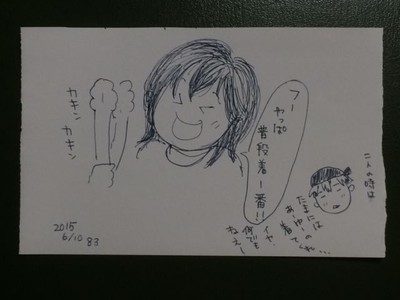 カキン
カキン
フー
やっぱ
普段着一番!!
二人の時は
たまには
あーゆーの
着てくれ…
イヤ、
何でも
ねえー
2015
6/10 83